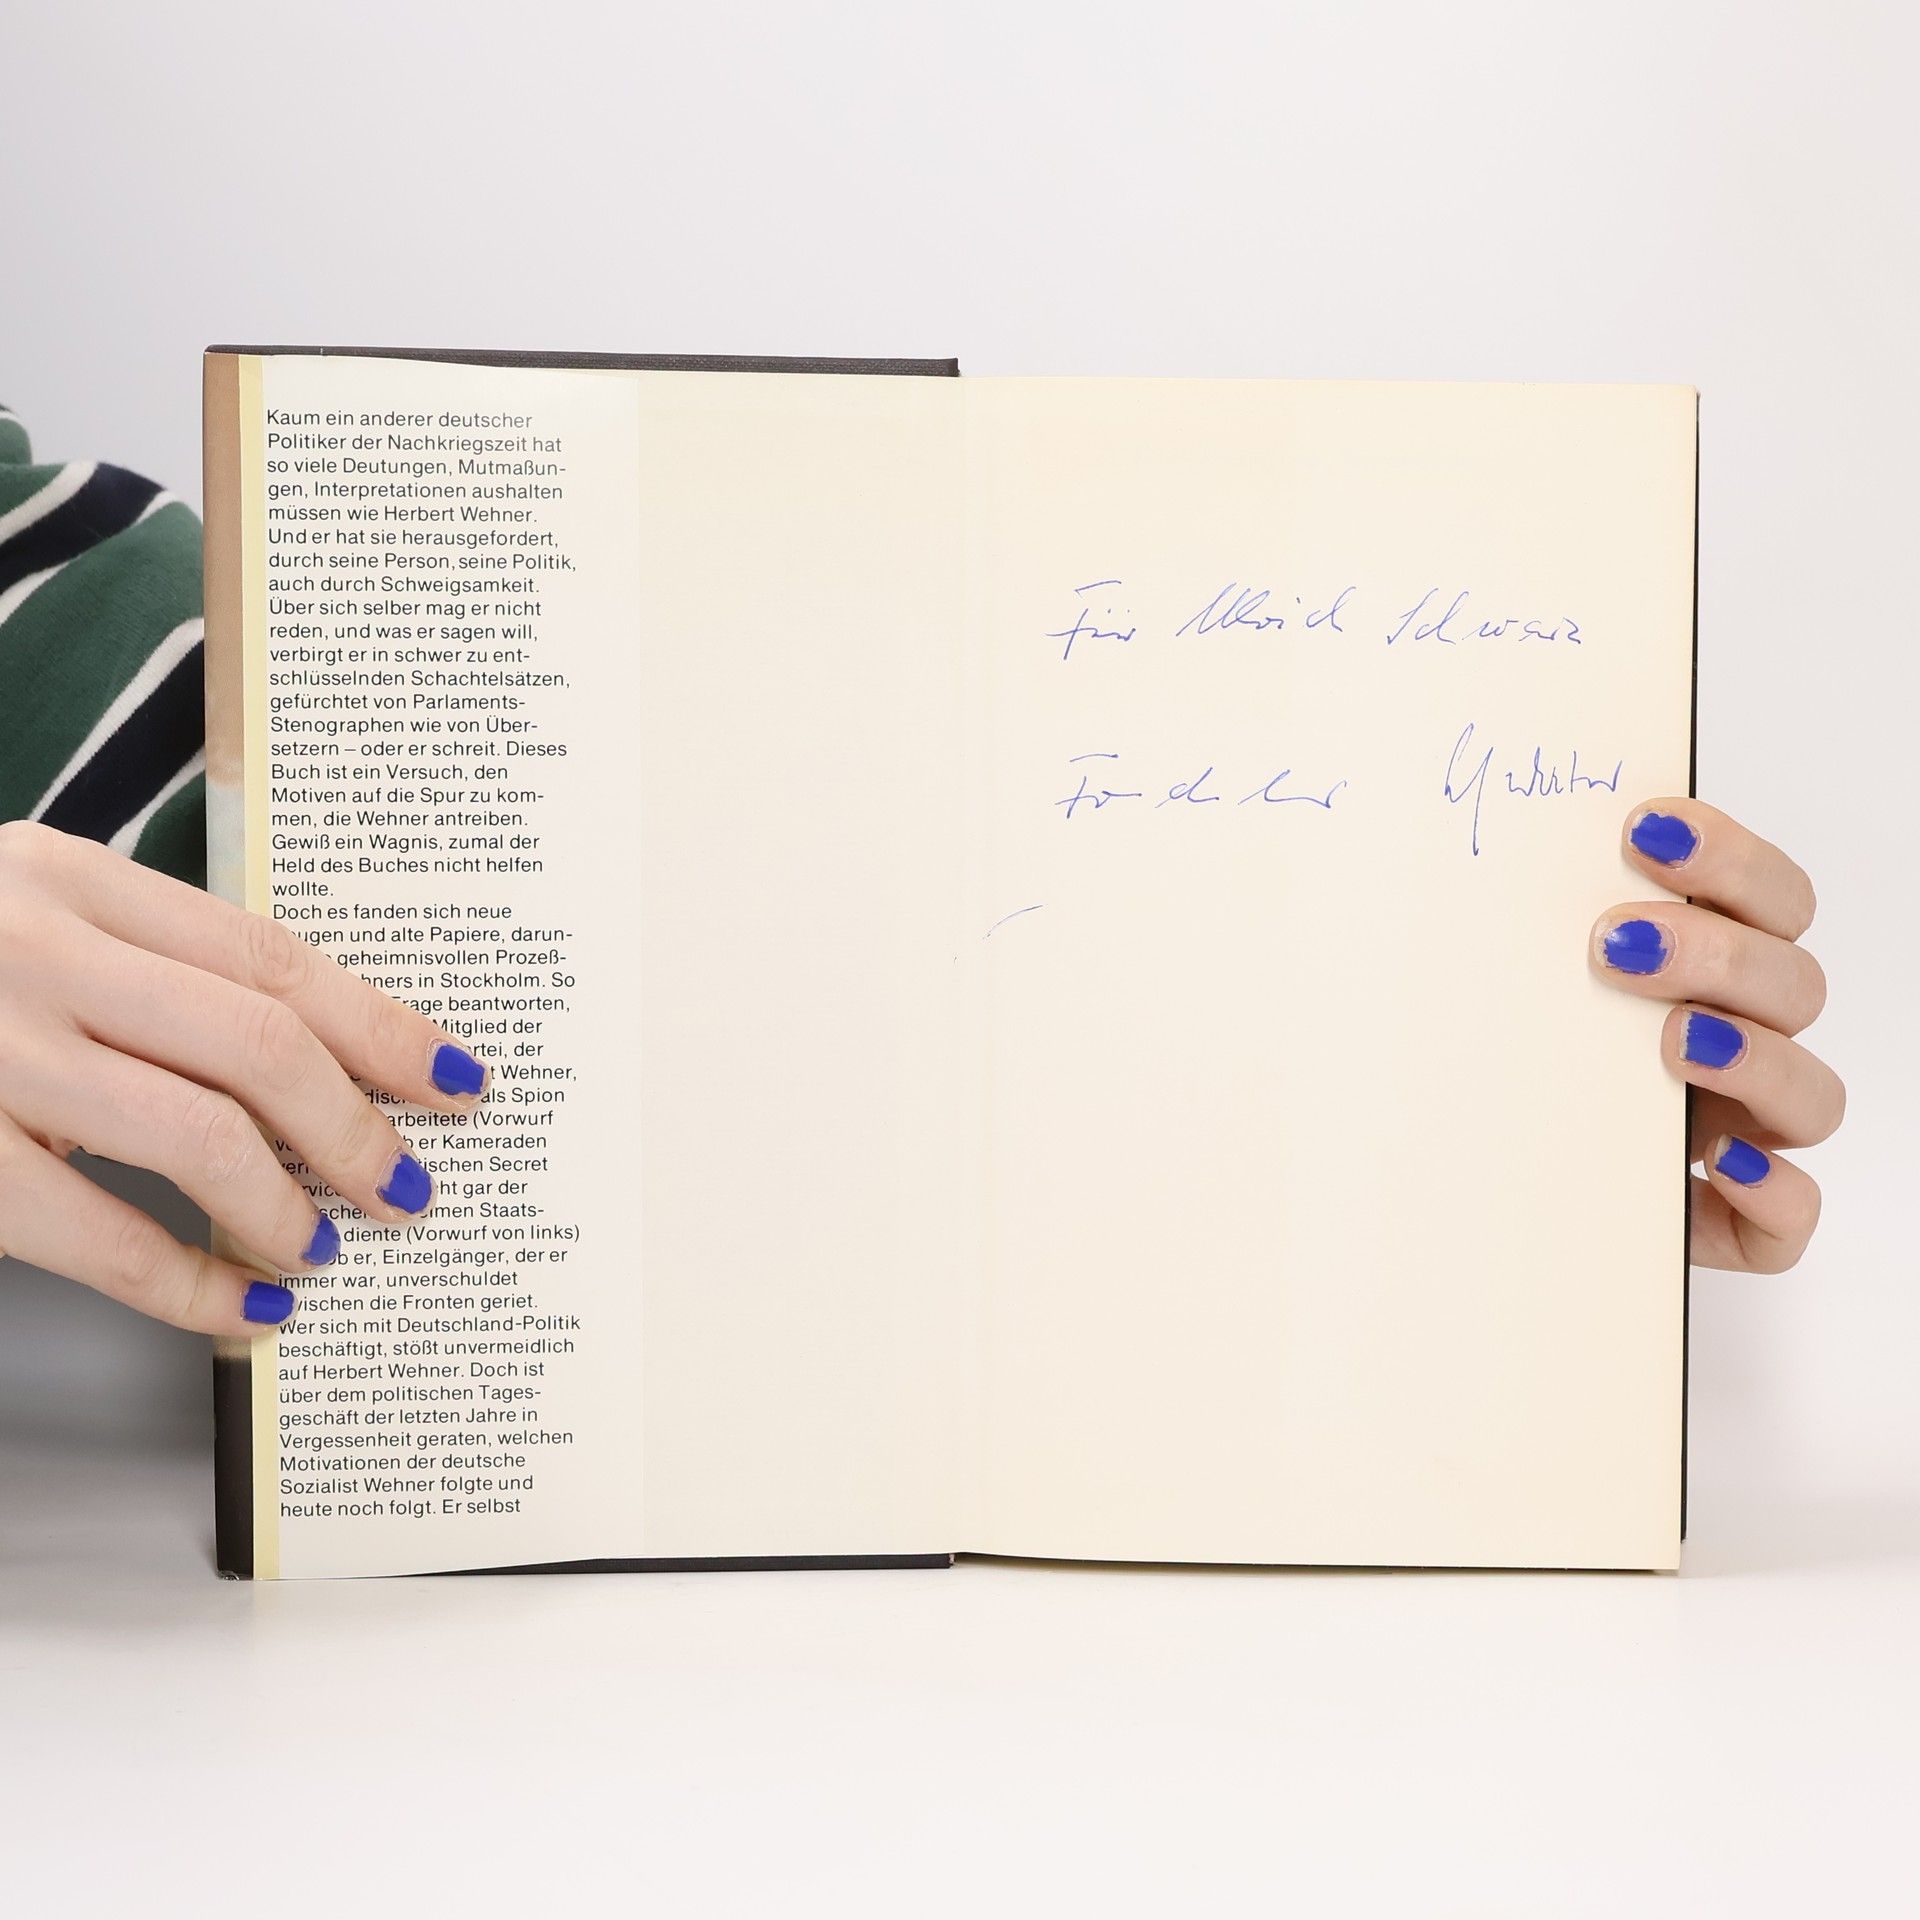 Kaum ein anderer deutscher
Politiker der Nachkriegszeit hat
so viele Deutungen, Mutmaßun-
gen, Interpretationen aushalten
müssen wie Herbert Wehner.
Und er hat sie herausgefordert,
durch seine Person, seine Politik,
auch durch Schweigsamkeit.
Über sich selber mag er nicht
reden, und was er sagen will,
verbirgt er in schwer zu ent-
schlüsselnden Schachtelsätzen,
gefürchtet von Parlaments-
Stenographen wie von Über-
setzern – oder er schreit. Dieses
Buch ist ein Versuch, den
Motiven auf die Spur zu kom-
men, die Wehner antreiben.
Gewiß ein Wagnis, zumal der
Held des Buches nicht helfen
wollte.
Doch es fanden sich neue
und alte Papiere, darun-
geheimnisvollen Prozeß-
in Stockholm. So
Frage beantworten,
Mitglied der
der
Wehner,
als Spion
arbeitete (Vorwurf
er Kameraden
Secret
gar der
Staats-
diente (Vorwurf von links)
ob er, Einzelgänger, der er
immer war, unverschuldet
zwischen die Fronten geriet.
Wer sich mit Deutschland-Politik
beschäftigt, stößt unvermeidlich
auf Herbert Wehner. Doch ist
über dem politischen Tages-
geschäft der letzten Jahre in
Vergessenheit geraten, welchen
Motivationen der deutsche
Sozialist Wehner folgte und
heute noch folgt. Er selbst
Für Ulrich Schwarz